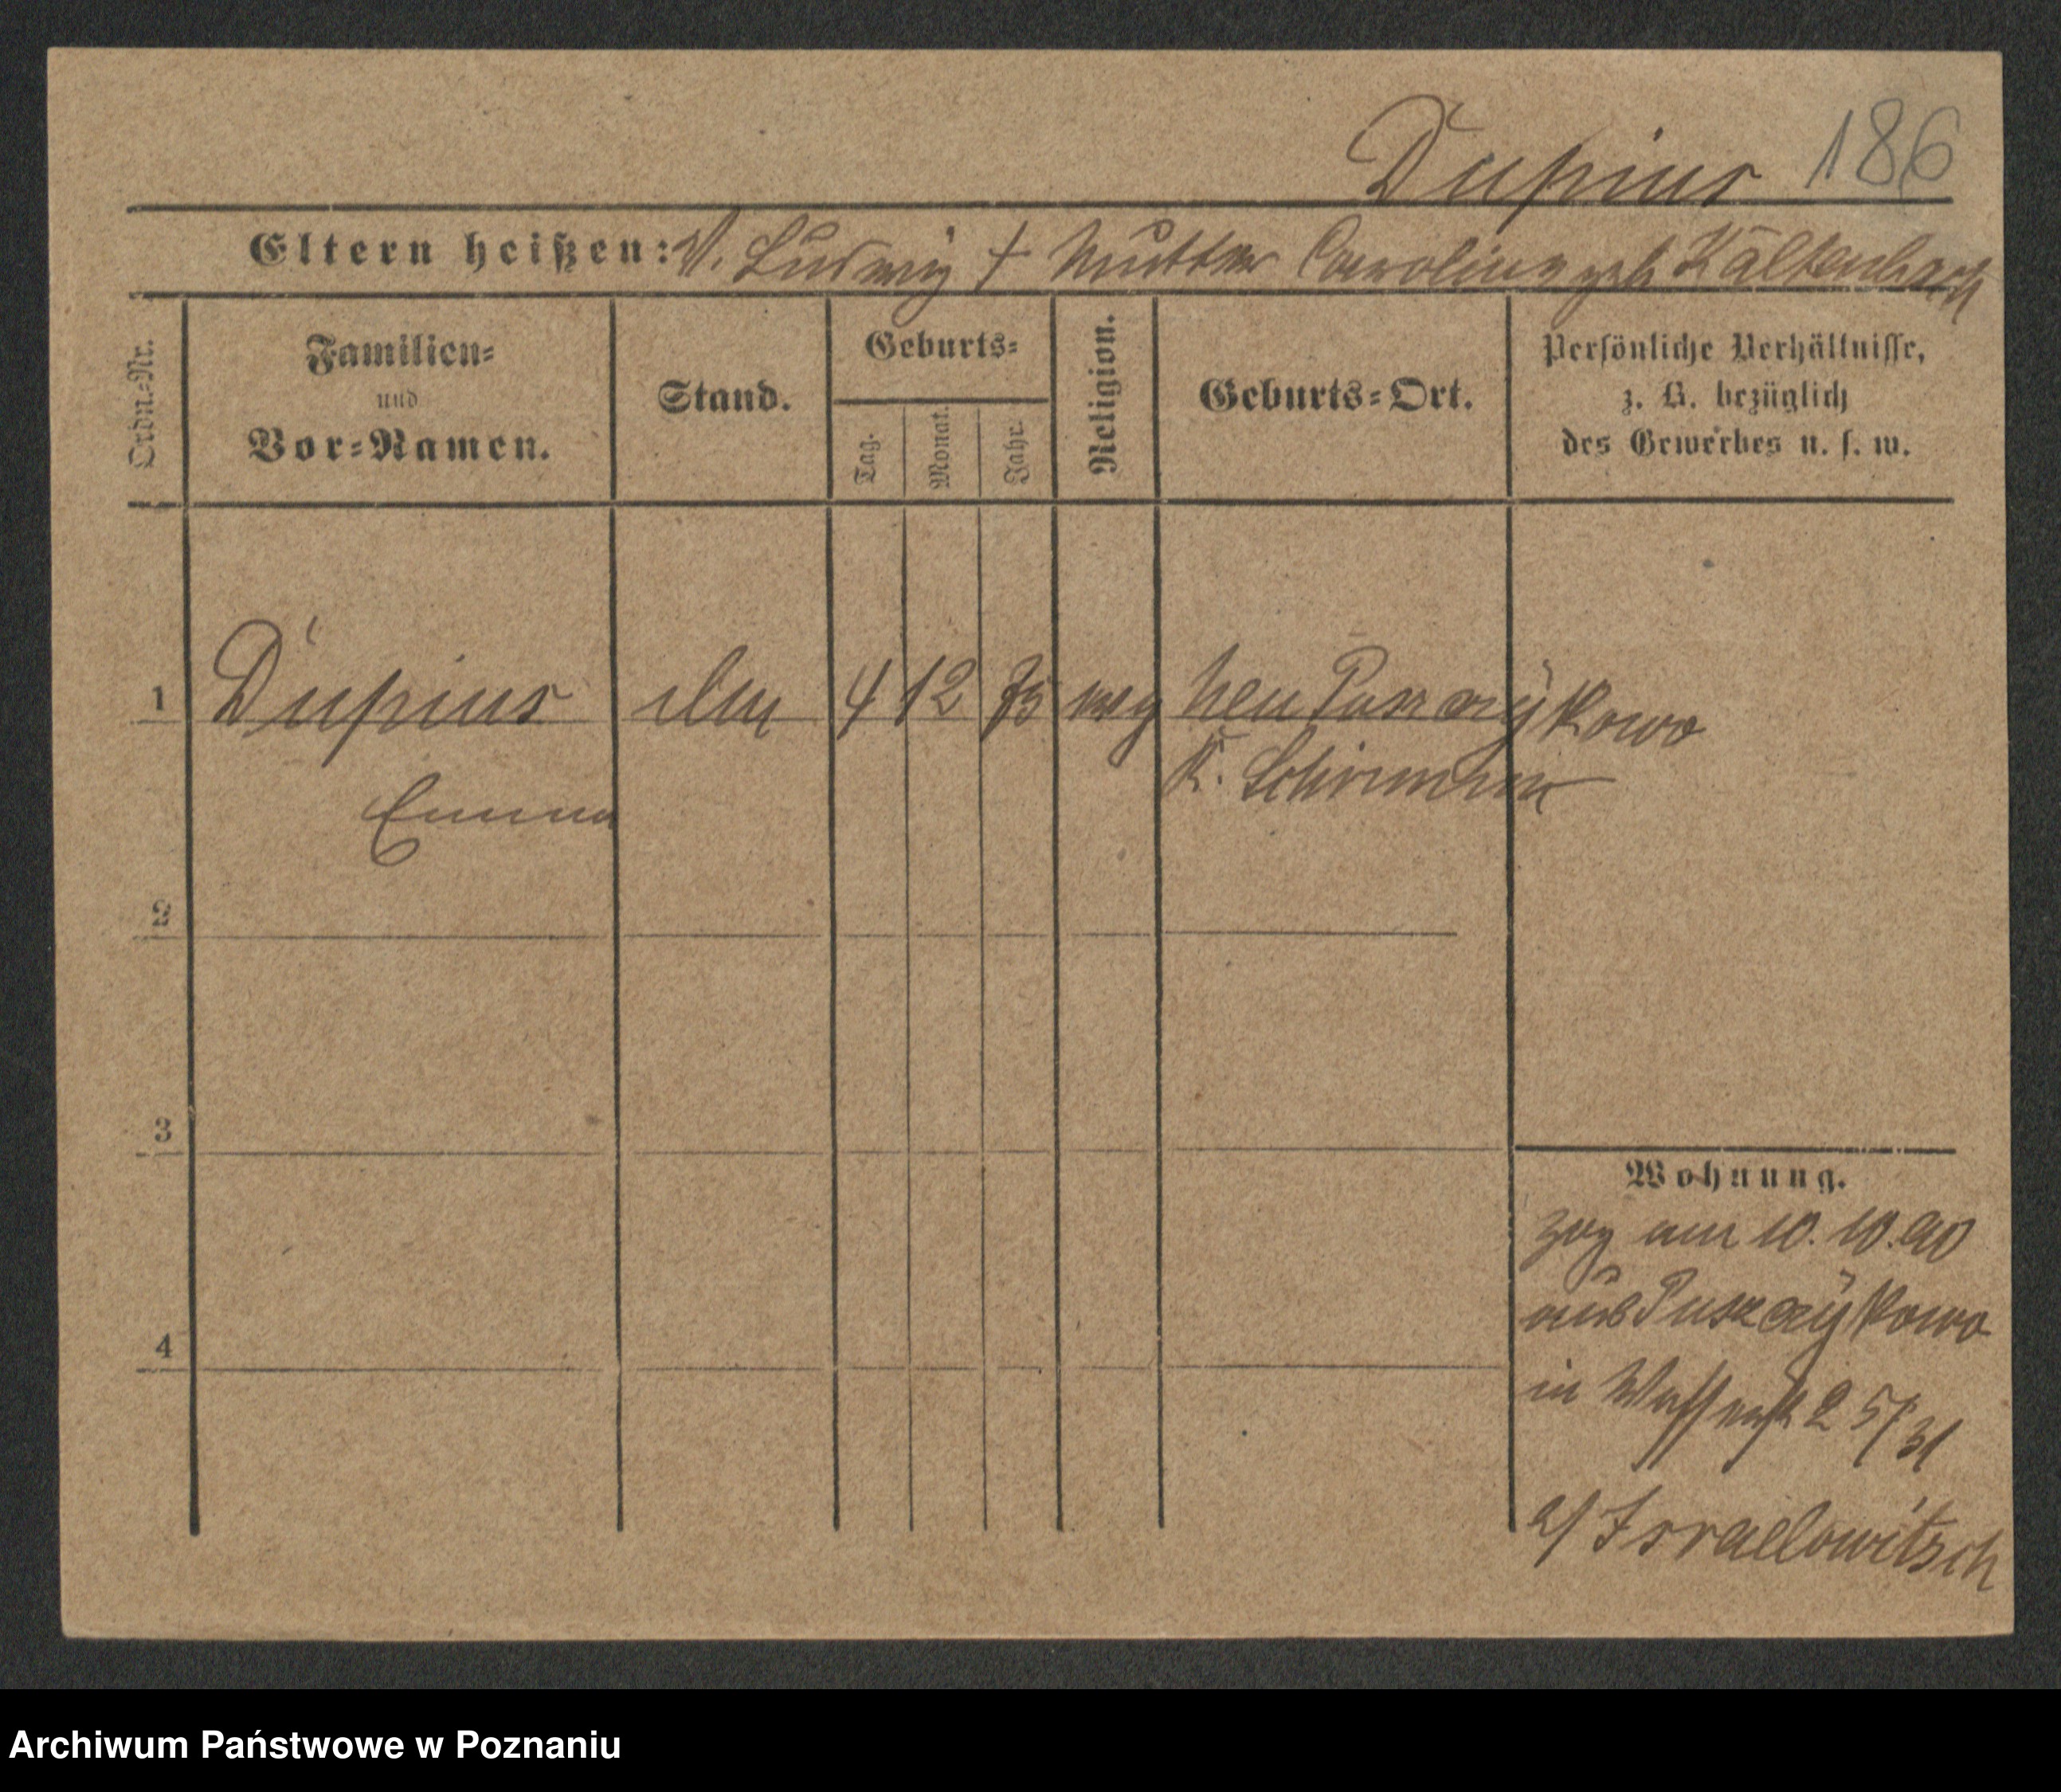 Dupius 186
Eltern heißen: V. Ludwig † Mutter Caroline geb Kaltenbach
Ordn.-Nr.
Familien-
und
Vor-Namen.
Stand.
Geburts-
Tag.
Monat.
Jahr.
Religion.
Geburts-Ort.
Persönliche Verhältnisse,
z. B. bezüglich
des Gewerbes u. s. w.
1 Dupius 4 12 75 Neu Puszczykowo
K. Schrimm
Emma
2
3
4
Wohnung.
zog am 10. 10. 90
aus Puszczykowo
in
b/ Israelowitsch
Archiwum Państwowe w Poznaniu